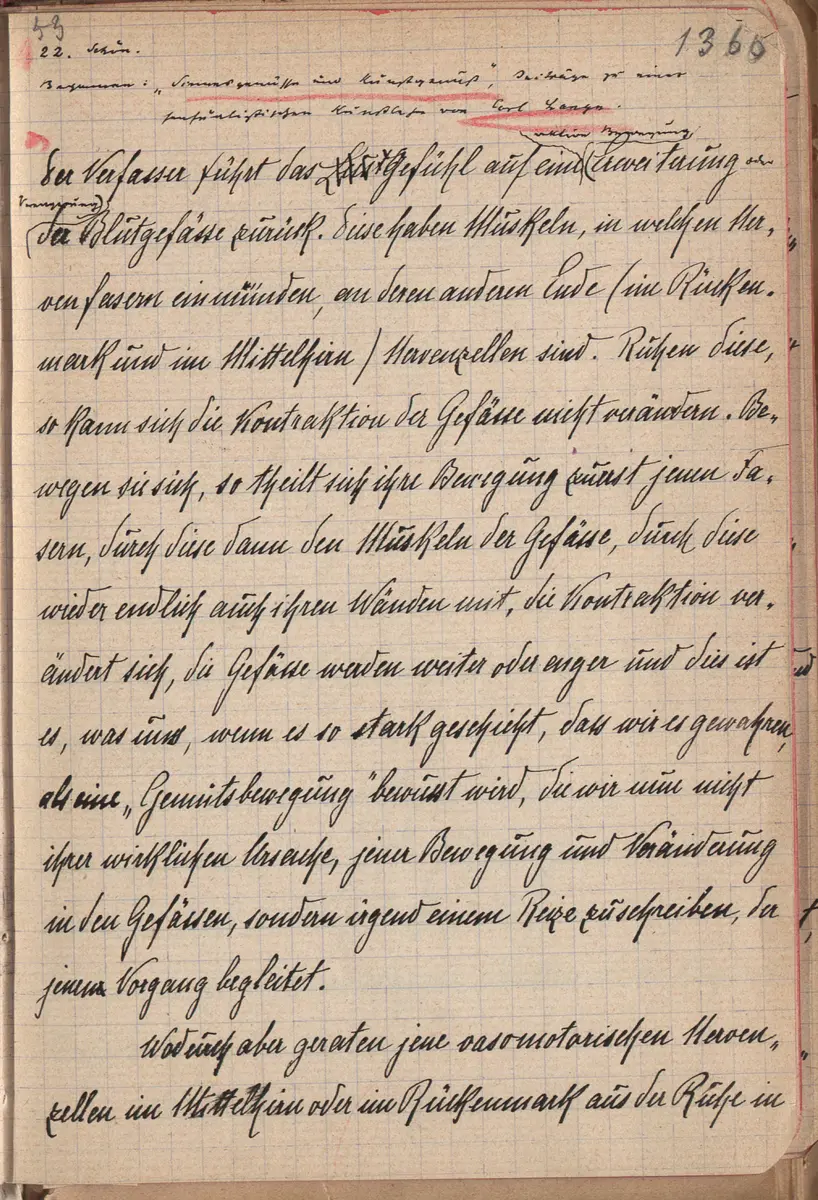 53
1365
22. Schön.
Bergmann: „Sinnesgenüsse und Kunstgenuß", Beiträge zu einer
sensualistischen Kunstlehre von Carl Lange.
aktive Bewegung,
Der Verfasser führt das Gefühl auf eine Erweiterung oder
Verengerung
der Blutgefässe zurück. Diese haben Muskeln, in welchen Ner-
venfasern einmünden, an deren anderen Ende (im Rücken-
mark und im Mittelhirn) Nervenzellen sind. Ruhen diese,
so kann sich die Kontraktion der Gefässe nicht verändern. Be-
wegen sie sich, so theilt sich ihre Bewegung zuerst jenen Fa-
sern, durch diese dann den Muskeln der Gefässe, durch diese
wieder endlich auch ihren Wänden mit, die Kontraktion ver-
ändert sich, die Gefässe werden weiter oder enger und dies ist
es, was uns, wenn es so stark geschieht, dass wir es gewahren,
als eine „Gemütsbewegung" bewusst wird, die wir nun nicht
ihrer wirklichen Ursache, jener Bewegung und Veränderung
in den Gefässen, sondern irgend einem Reize zuschreiben, der
jenen Vorgang begleitet.
Wodurch aber geraten jene vasomotorischen Nerven-
zellen im Mittelhirn oder im Rückenmark aus der Ruhe in